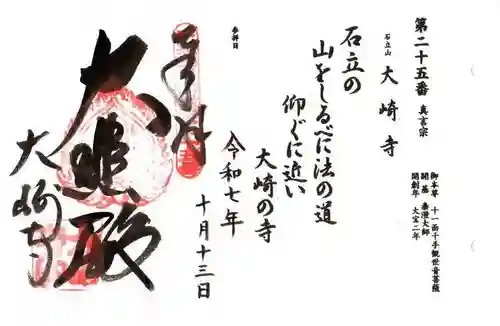 第二十五番 真言宗
石立山
大崎寺
御本尊 十一面千手観世音菩薩
開基 泰澄大師
開創年 大宝二年
石立の
山をしるべに法の道
仰ぐに近い
大崎の寺
参拝日
令和七年
十月十三日
奉拝
大悲殿
大崎寺